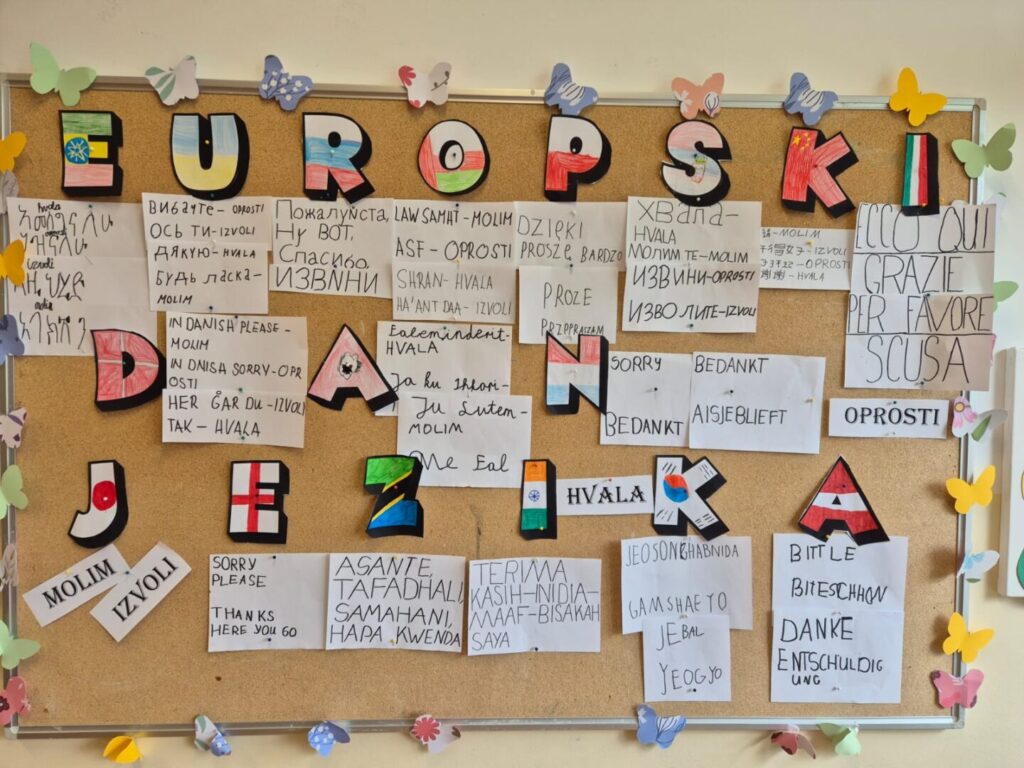 EUROPSKI
Вибачте- OPROSTI
ОСЬ ТИ-IZVOLI
ДЯКУЮ-HVALA
БУДЬ ЛАСКА-
MOLIM
Пожалуйста,
Ну ВОТ,
Спасибо,
ИЗВИНИ
LAW SAMAT-MOLIM
ASF - OPROSTI
SHRAN-HVALA
HA'ANT DAA-IZVOLI
DZIĘKI
PROSZĘ BARDZO
PROZE
PRZPPRASZAM
ХВАЛА-
HVALA
МОЛИМ ТЕ-MOLIM
ИЗВИНИ-OPROSTI
ИЗВОЛИТЕ-IZVOLI
-MOLIM
-IZVOLI
-OPROSTI
-HVALA
ECCO QUI
GRAZIE
PER FAVORE
SCUSA
DAN
IN DANISH PLEASE-
MOLIM
IN DNISH SORRY-OPR
OSTI
HER GÅR DU-IZVOLI
TAK-HVALA
Faleminderit-
HVALA
Ju Lutem-
MOLIM
Me Fal
SORRY
BEDANKT
BEDANKT
AISJEBLIEFT
OPROSTI
JEZIKA
HVALA
MOLIM
IZVOLI
SORRY
PLEASE
THANKS
HERE YOU GO
ASANTE,
TAFADHALI,
SAMAHANI,
HAPA KWENDA
TERIMA
KASIH-INIDIA-
MAAF-BISAKAH
SAYA
JEOSONGHABNIDA
GAMSHAEYO
JEBAL
YEOGYO
BITTLE
BITESCHHON
DANKE
ENTSCHULDIG
UNG